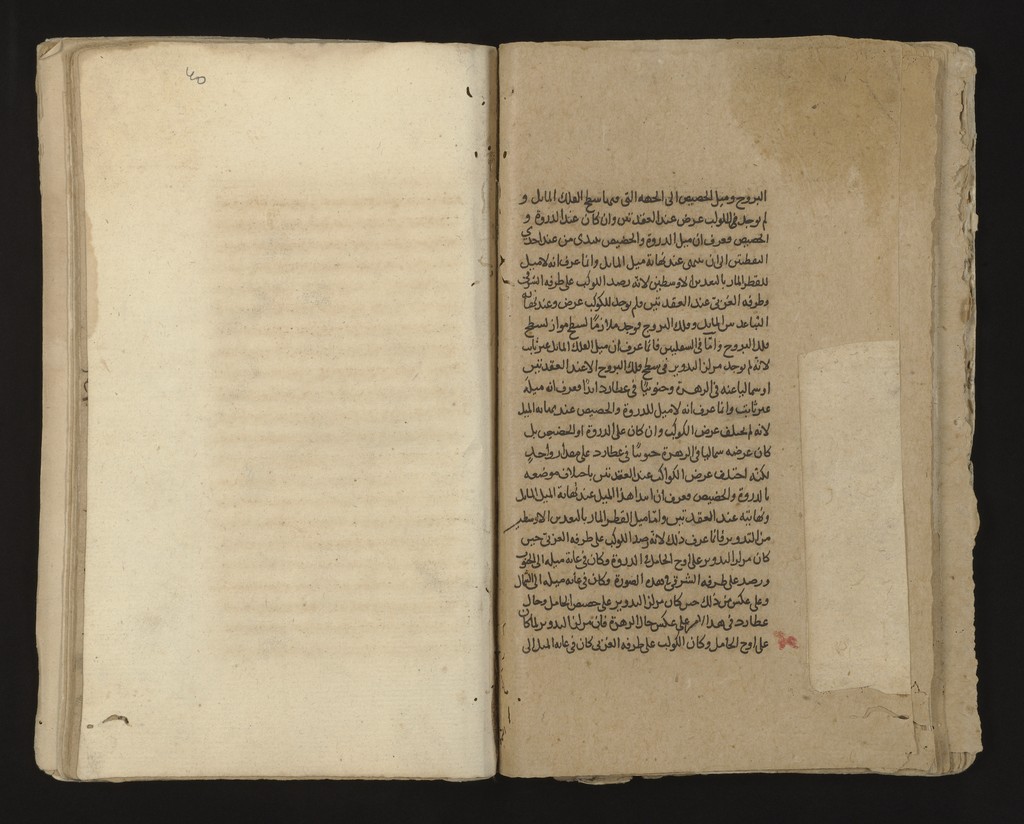 البروج وميل الحضيض الى الجهة التى فيها سطح الفلك المايل و
لم يوجد فى للكوكب عرض عند العقدتين وان كان عند الذروة و
الحضيض فعرف ان ميل الذروة والحضيض يبتدى من عند احدى
النقطتين الى ان ينتهى عند نهاية ميل المايل وانما عرف انه لا ميل
للقطر المار بالبعدين الاوسطين لانه رصد الكوكب على طرفه الشرقى
وطرفه الغربى عند العقدتين فلم يوجد للكوكب عرض وعند نهاية
التباعد بين المايل وفلك البروج فوجد ملازما لسطح مواز لسطح
فلك البروج واما فى السفليين فانما عرف ان ميل الفلك المايل غير ثابت
لانه لم يوجد مركز التدوير فى سطح فلك البروج الا عند العقدتين
او شماليا عنه فى الزهرة وجنوبيا فى عطارد ابدا فعرف انه ميله
غير ثابت وانما عرف انه لا ميل للذروة والحضيض عند نهاية الميل
لانه لم يختلف عرض الكوكب وان كان على الذروة او الحضيض بل
كان عرضه شماليا فى الزهرة جنوبيا فى عطارد على مقدار واحد
لكنه اختلف عرض الكواكب عند العقدتين باختلاف موضعه
بالذروة والحضيض فعرف ان ابتدا هذا الميل عند نهاية الميل المايل
ونهايته عند العقدتين واما ميل القطر المار بالبعدين الاوسطين
من التدوير فانما عرف ذلك لانه رصد الكوكب على طرفه الغربى حين
كان مركز التدوير على اوج الحامل فى الذروة وكان فى غاية ميله الى الجنوب
ورصد على طرفه الشرقى فى هذه الصورة وكان فى غاية ميله الى الشمال
وعلى عكس من ذلك حين كان مركز التدوير على حضيض الحامل وحال
عطارد فى هذا الامر على عكس حال الزهرة فان مركز التدوير لما كان
على اوج الحامل وكان الكوكب على طرفه الغربى كان فى غاية الميل الى